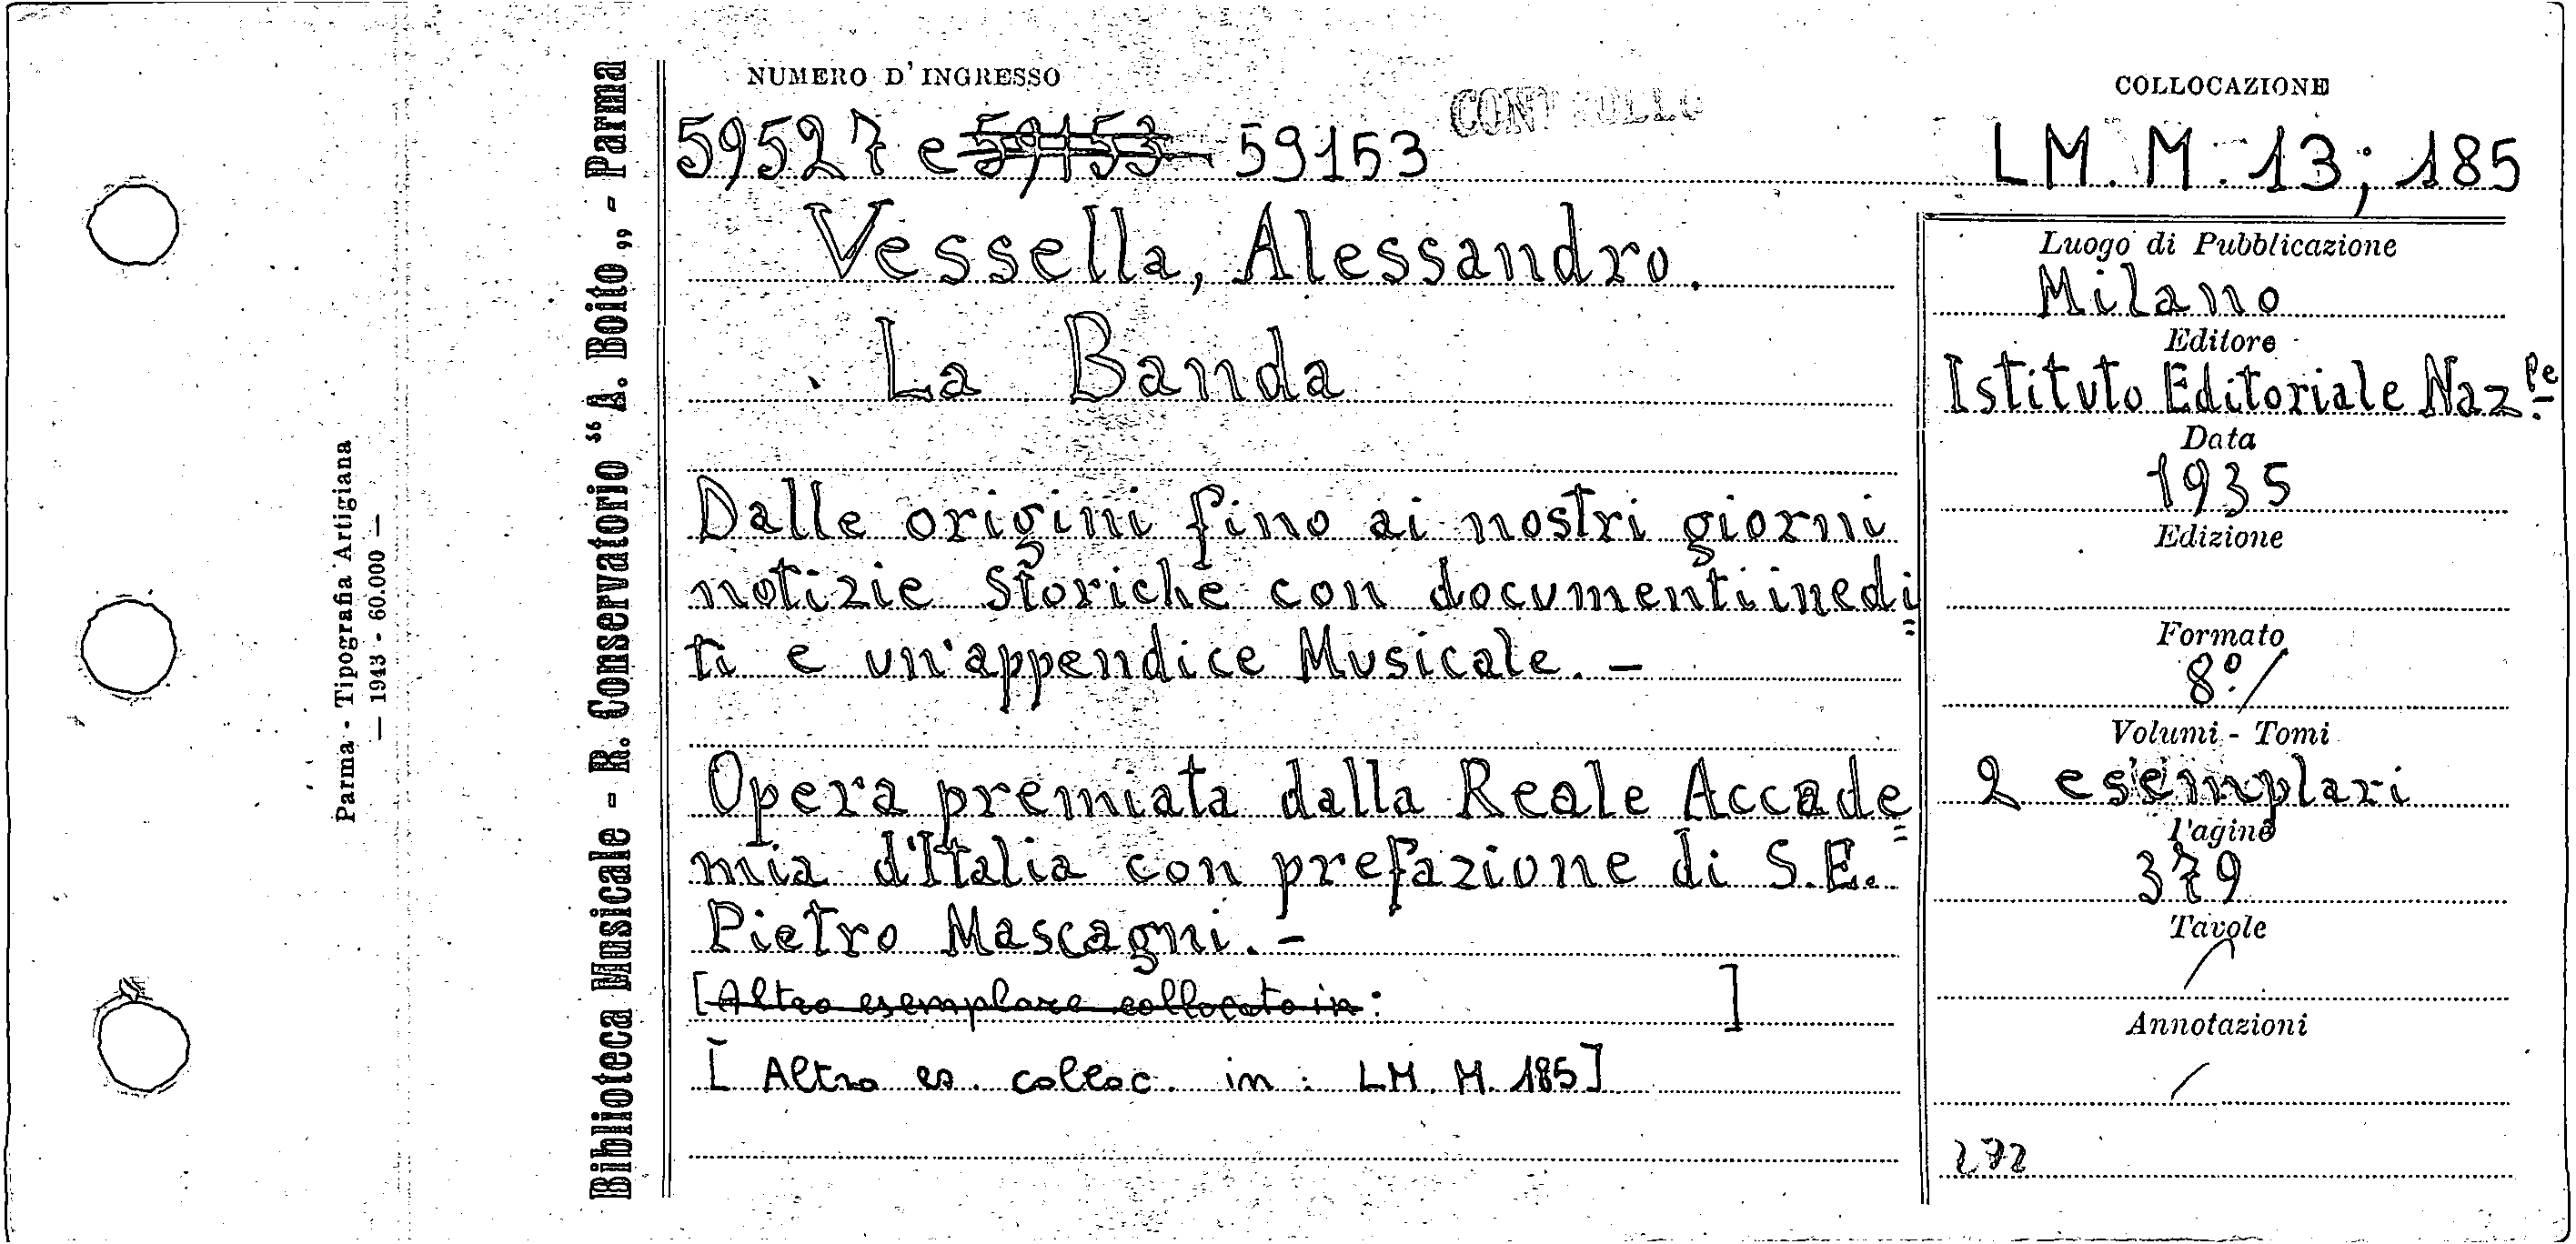 NUMERO D'INGRESSO
59527 e 59153 59153
CONTROLLO
COLLOCAZIONE
LM. M. 13; 185
Vessella, Alessandro.
La Banda
Dalle origini fino ai nostri giorni
notizie storiche con documenti inedi=
ti e un'appendice Musicale. -
Opera premiata dalla Reale Accade=
mia d'Italia con prefazione di S.E.
Pietro Mascagni. -
[Altro esemplare collocato in: ]
[Altro es. colloc. in: LM. M. 185]
Luogo di Pubblicazione
Milano
Editore
Istituto Editoriale Naz.le
Data
1935
Edizione
Formato
8º/
Volumi - Tomi
2 esemplari
Pagine
379
Tavole
/
Annotazioni
/
272
Biblioteca Musicale - R. Conservatorio "A. Boito„ - Parma
Parma - Tipografia Artigiana
— 1943 - 60.000 —